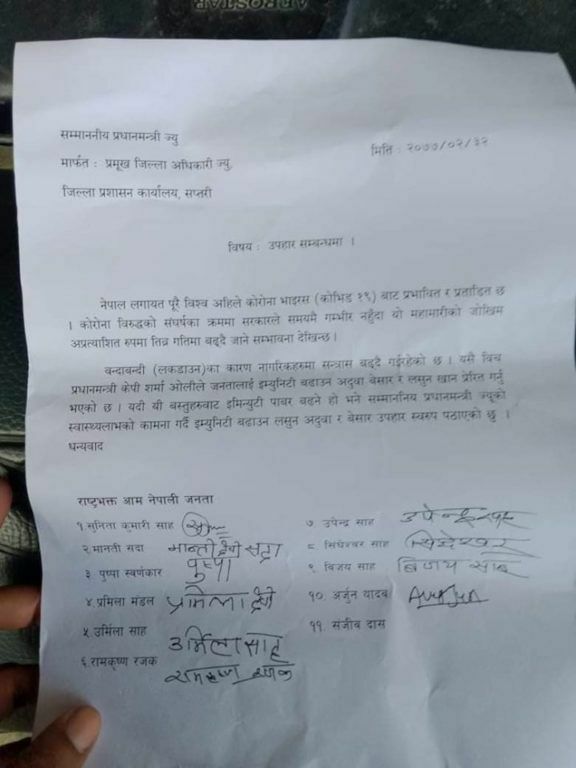 AEROSTAR
सम्माननीय प्रधानमन्त्री ज्यु
मिति : २०७७/०२/३२
मार्फत : प्रमुख जिल्ला अधिकारी ज्यु,
जिल्ला प्रशासन कार्यालय, सप्तरी
विषय : उपहार सम्बन्धमा ।
नेपाल लगायत पूरै विश्व अहिले कोरोना भाइरस (कोभिड १९) बाट प्रभावित र प्रताडित छ
। कोरोना विरुद्धको संघर्षका क्रममा सरकारले समयमै गम्भीर नहुँदा यो महामारीको जोखिम
अप्रत्याशित रुपमा तिव्र गतिमा बढ्दै जाने सम्भावना देखिन्छ ।
बन्दाबन्दी (लकडाउन)का कारण नागरिकहरुमा सन्त्रास बढ्दै गईरहेको छ । यसै विच
प्रधानमन्त्री केपी शर्मा ओलीले जनतालाई इम्युनिटी बढाउन अदुवा बेसार र लसुन खान प्रेरित गर्नु
भएको छ । यदी यी बस्तुहरुवाट इमिन्युटी पाबर बढ्ने हो भने सम्माननिय प्रधानमन्त्री ज्यूको
स्वास्थ्यलाभको कामना गर्दै इम्युनिटी बढाउन लसुन अदुवा र बेसार उपहार स्वरुप पठाएको छु ।
धन्यवाद
राष्ट्रभक्त आम नेपाली जनता :
१.सुनिता कुमारी साह
२.मानती सदा मानती देवी सदा
३ पुष्पा स्वर्णकार पुष्पा
४.प्रमिला मंडल प्रमिला देवी
५.उर्मिला साह उर्मिला साह
६.रामकृष्ण रजक रामकृष्ण रजक
७ उपेन्द्र साह उपेन्द्र साह
८ सिधेश्वर साह सिद्धेश्वर
९ विजय साह विजय साह
१०. अर्जुन यादब Arjun
११. संजीब दास